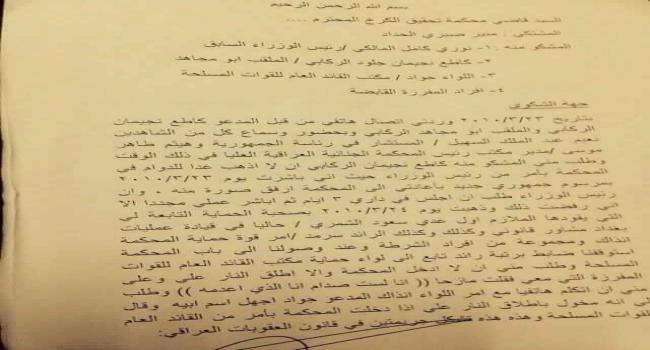 بسم الله الرحمن الرحيم
السيد قاضي محكمة تحقيق الكرخ المحترم ....
المشتكي : منير صبري الحداد
المشكو منه : ١- نوري كامل المالكي /رئيس الوزراء السابق
٢- كاطع نجيمان جلود الركابي / الملقب ابو مجاهد
٣- اللواء جواد / مكتب القائد العام للقوات المسلحة
٤- افراد المفرزة القابضة
جهة الشكوى
بتاريخ ٢٠١٠/٣/٢٣ وردني اتصال هاتفي من قبل المدعو كاطع نجيمان
الركابي والملقب ابو مجاهد الركابي وبحضور وسماع كل من الشاهدين
نعيم عبد الملك السهيل / المستشار في رئاسة الجمهورية وهيثم طاهر
موسى /مدير مكتب رئيس المحكمة الجنائية العراقية العليا في ذلك الوقت
وطلب مني المشكو منه كاطع نجيمان الركابي ان لا اذهب غدا للدوام في
المحكمة بأمر من رئيس الوزراء حيث اني باشرت يوم ٢٠١٠/٣/٢٣
بمرسوم جمهوري جديد بأعادتي الى المحكمة ارفق صورة منه . وان
رئيس الوزراء طلب ان اجلس في داري ٣ ايام ثم اباشر عملي مجددا الا
اني رفضت ذلك وذهبت يوم ٢٠١٠/٣/٢٤ بصحبة الحماية التابعة لي
التي يقودها الملازم اول عدي سعود الشمري / حاليا في قيادة عمليات
بغداد مشاور قانوني وكذلك وكذلك الرائد سرمد /امر قوة حماية المحكمة
انذاك ومجموعة من افراد الشرطة وعند وصولنا الى باب المحكمة
استوقفنا ضابط برتبة رائد تابع الى لواء حماية مكتب القائد العام للقوات
المسلحة وطلب مني ان لا ادخل المحكمة والا اطلق النار علي وعلى
المفرزة التي معي فقلت مازحا (( انا لست صدام انا الذي اعدمه )) وطلب
مني ان اتكلم هاتفيا مع امر اللواء انذاك المدعو جواد اجهل اسم ابيه وقال
لي انه مخول باطلاق النار علي اذا دخلت المحكمة بأمر من القائد العام
للقوات المسلحة وهذه هذه تشكل جريمتين في قانون العقوبات العراقي: